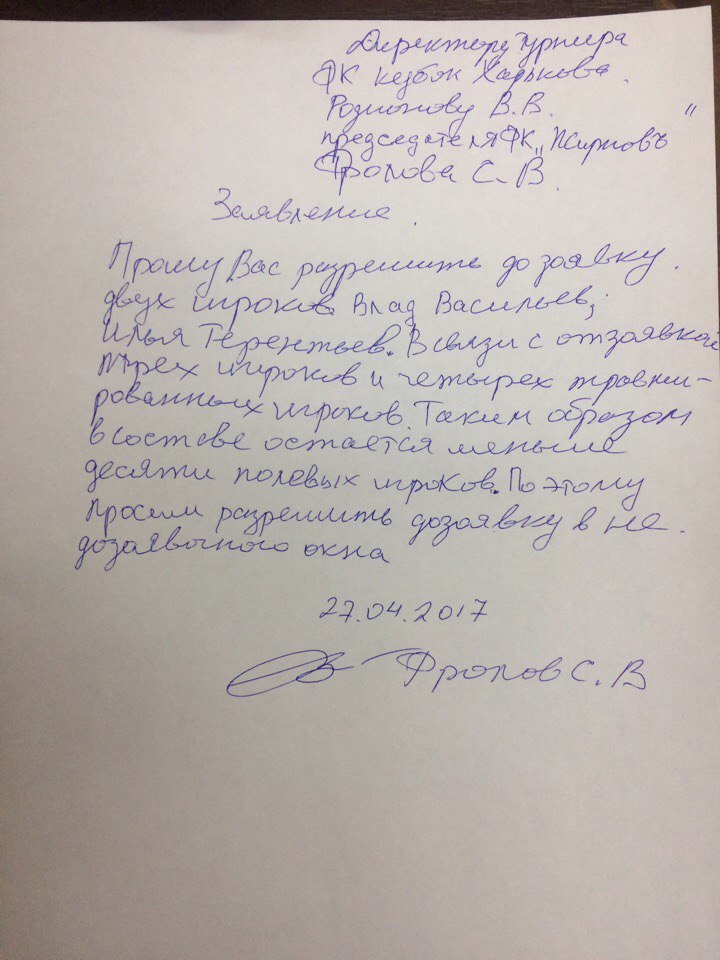 Директору турнира
ФК кубок Харькова.
Родионову В.В.
председателя ФК „Жирновъ"
Фролова С.В.
Заявление.
Прошу Вас разрешить до заявку.
двух игроков Влад Васильев;
Илья Терентьев. В связи с отзаявкой
трех игроков и четырех травми-
рованных игроков. Таким образом
в составе остается меньше
десяти полевых игроков. Поэтому
просим разрешить дозаявку в не.
дозаявочного окна
27.04.2017
Фролов С.В